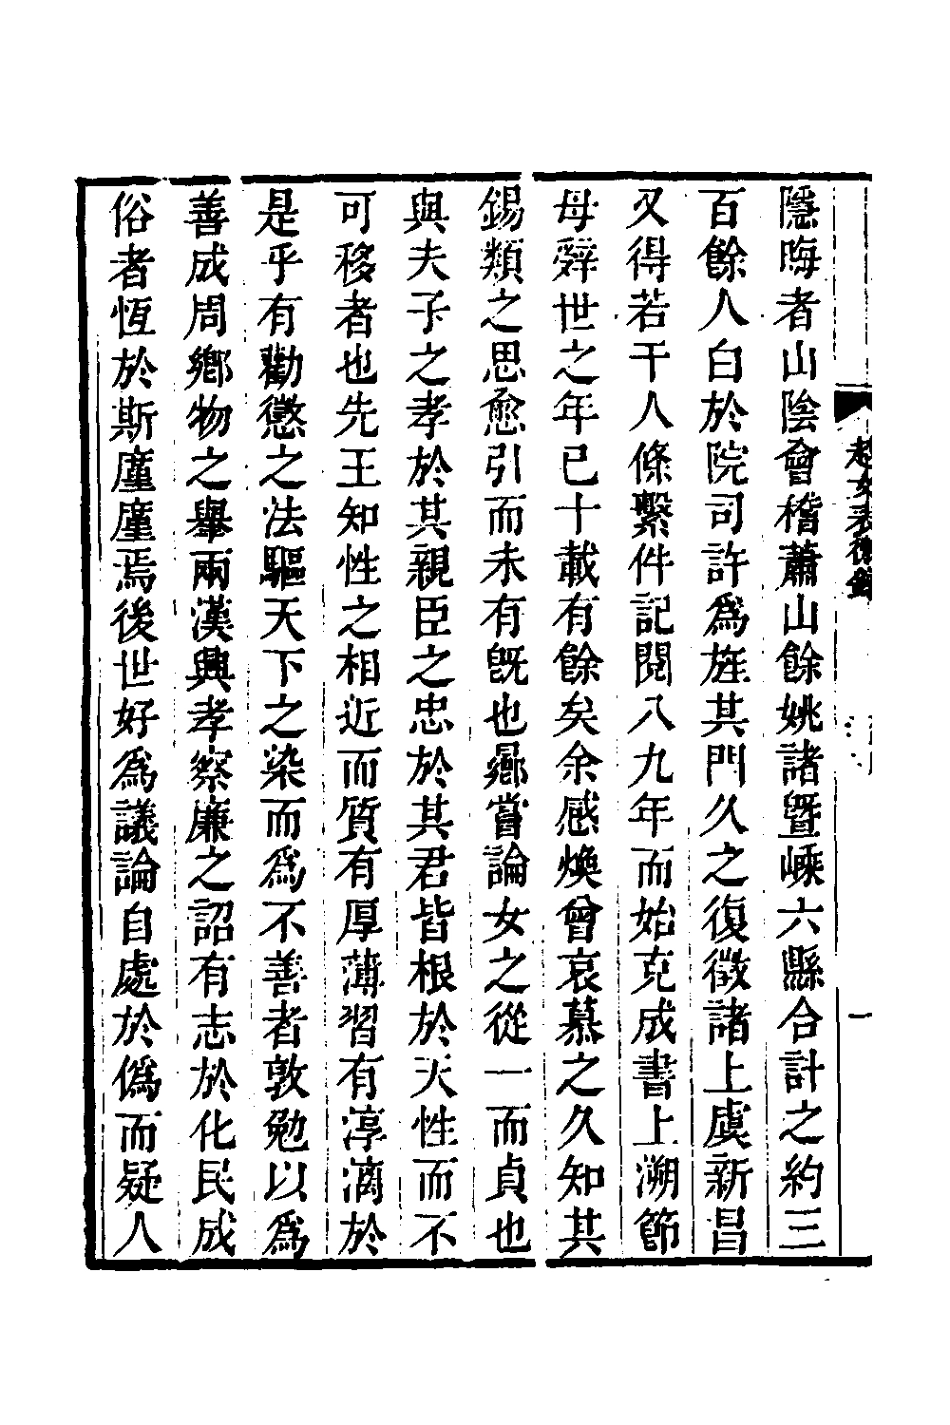 隱晦者山陰會稽蕭山餘姚諸曁嵊六縣合計之約三
百餘人白於院司許爲旌其門久之復徵諸上虞新昌
又得若干人條繫件記閱八九年而始克成書上溯節
母辤世之年已十載有餘矣余感煥曾哀慕之久知其
錫類之思愈引而未有旣也爰嘗論女之從一而貞也
與夫子之孝於其親臣之忠於其君皆根於天性而不
可移者也先王知性之相近而質有厚薄習有淳漓於
是乎有勸懲之法驅天下之染而爲不善者敦勉以爲
善成周鄉物之舉兩漢興孝察廉之詔有志於化民成
俗者恆於斯廑廑焉後世好爲議論自處於僞而疑人
一